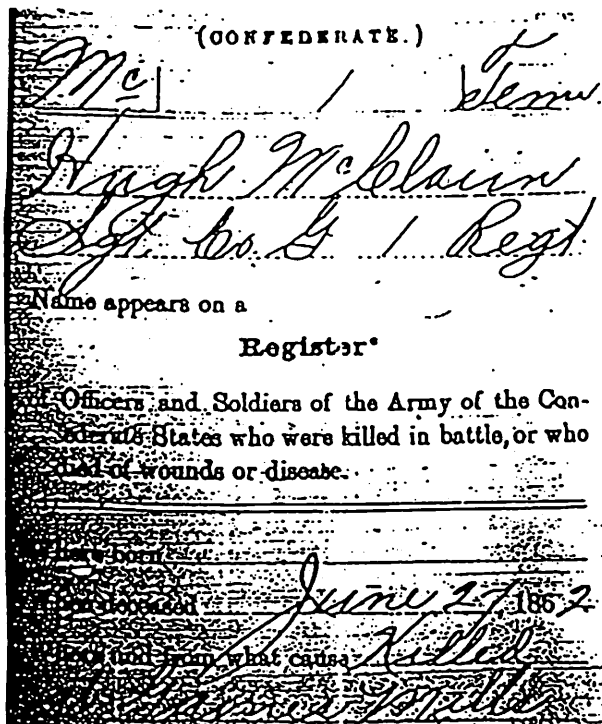 (CONFEDERATE.)
Mc 1 Tenn.
Hugh McClain
Sgt. Co. G 1 Regt.
Name appears on a
Register*
of Officers and Soldiers of the Army of the Con-
federate States who were killed in battle, or who
died of wounds or disease.
Where born
When deceased June 27, 1862
Where and from what cause Killed
Gaines Mills